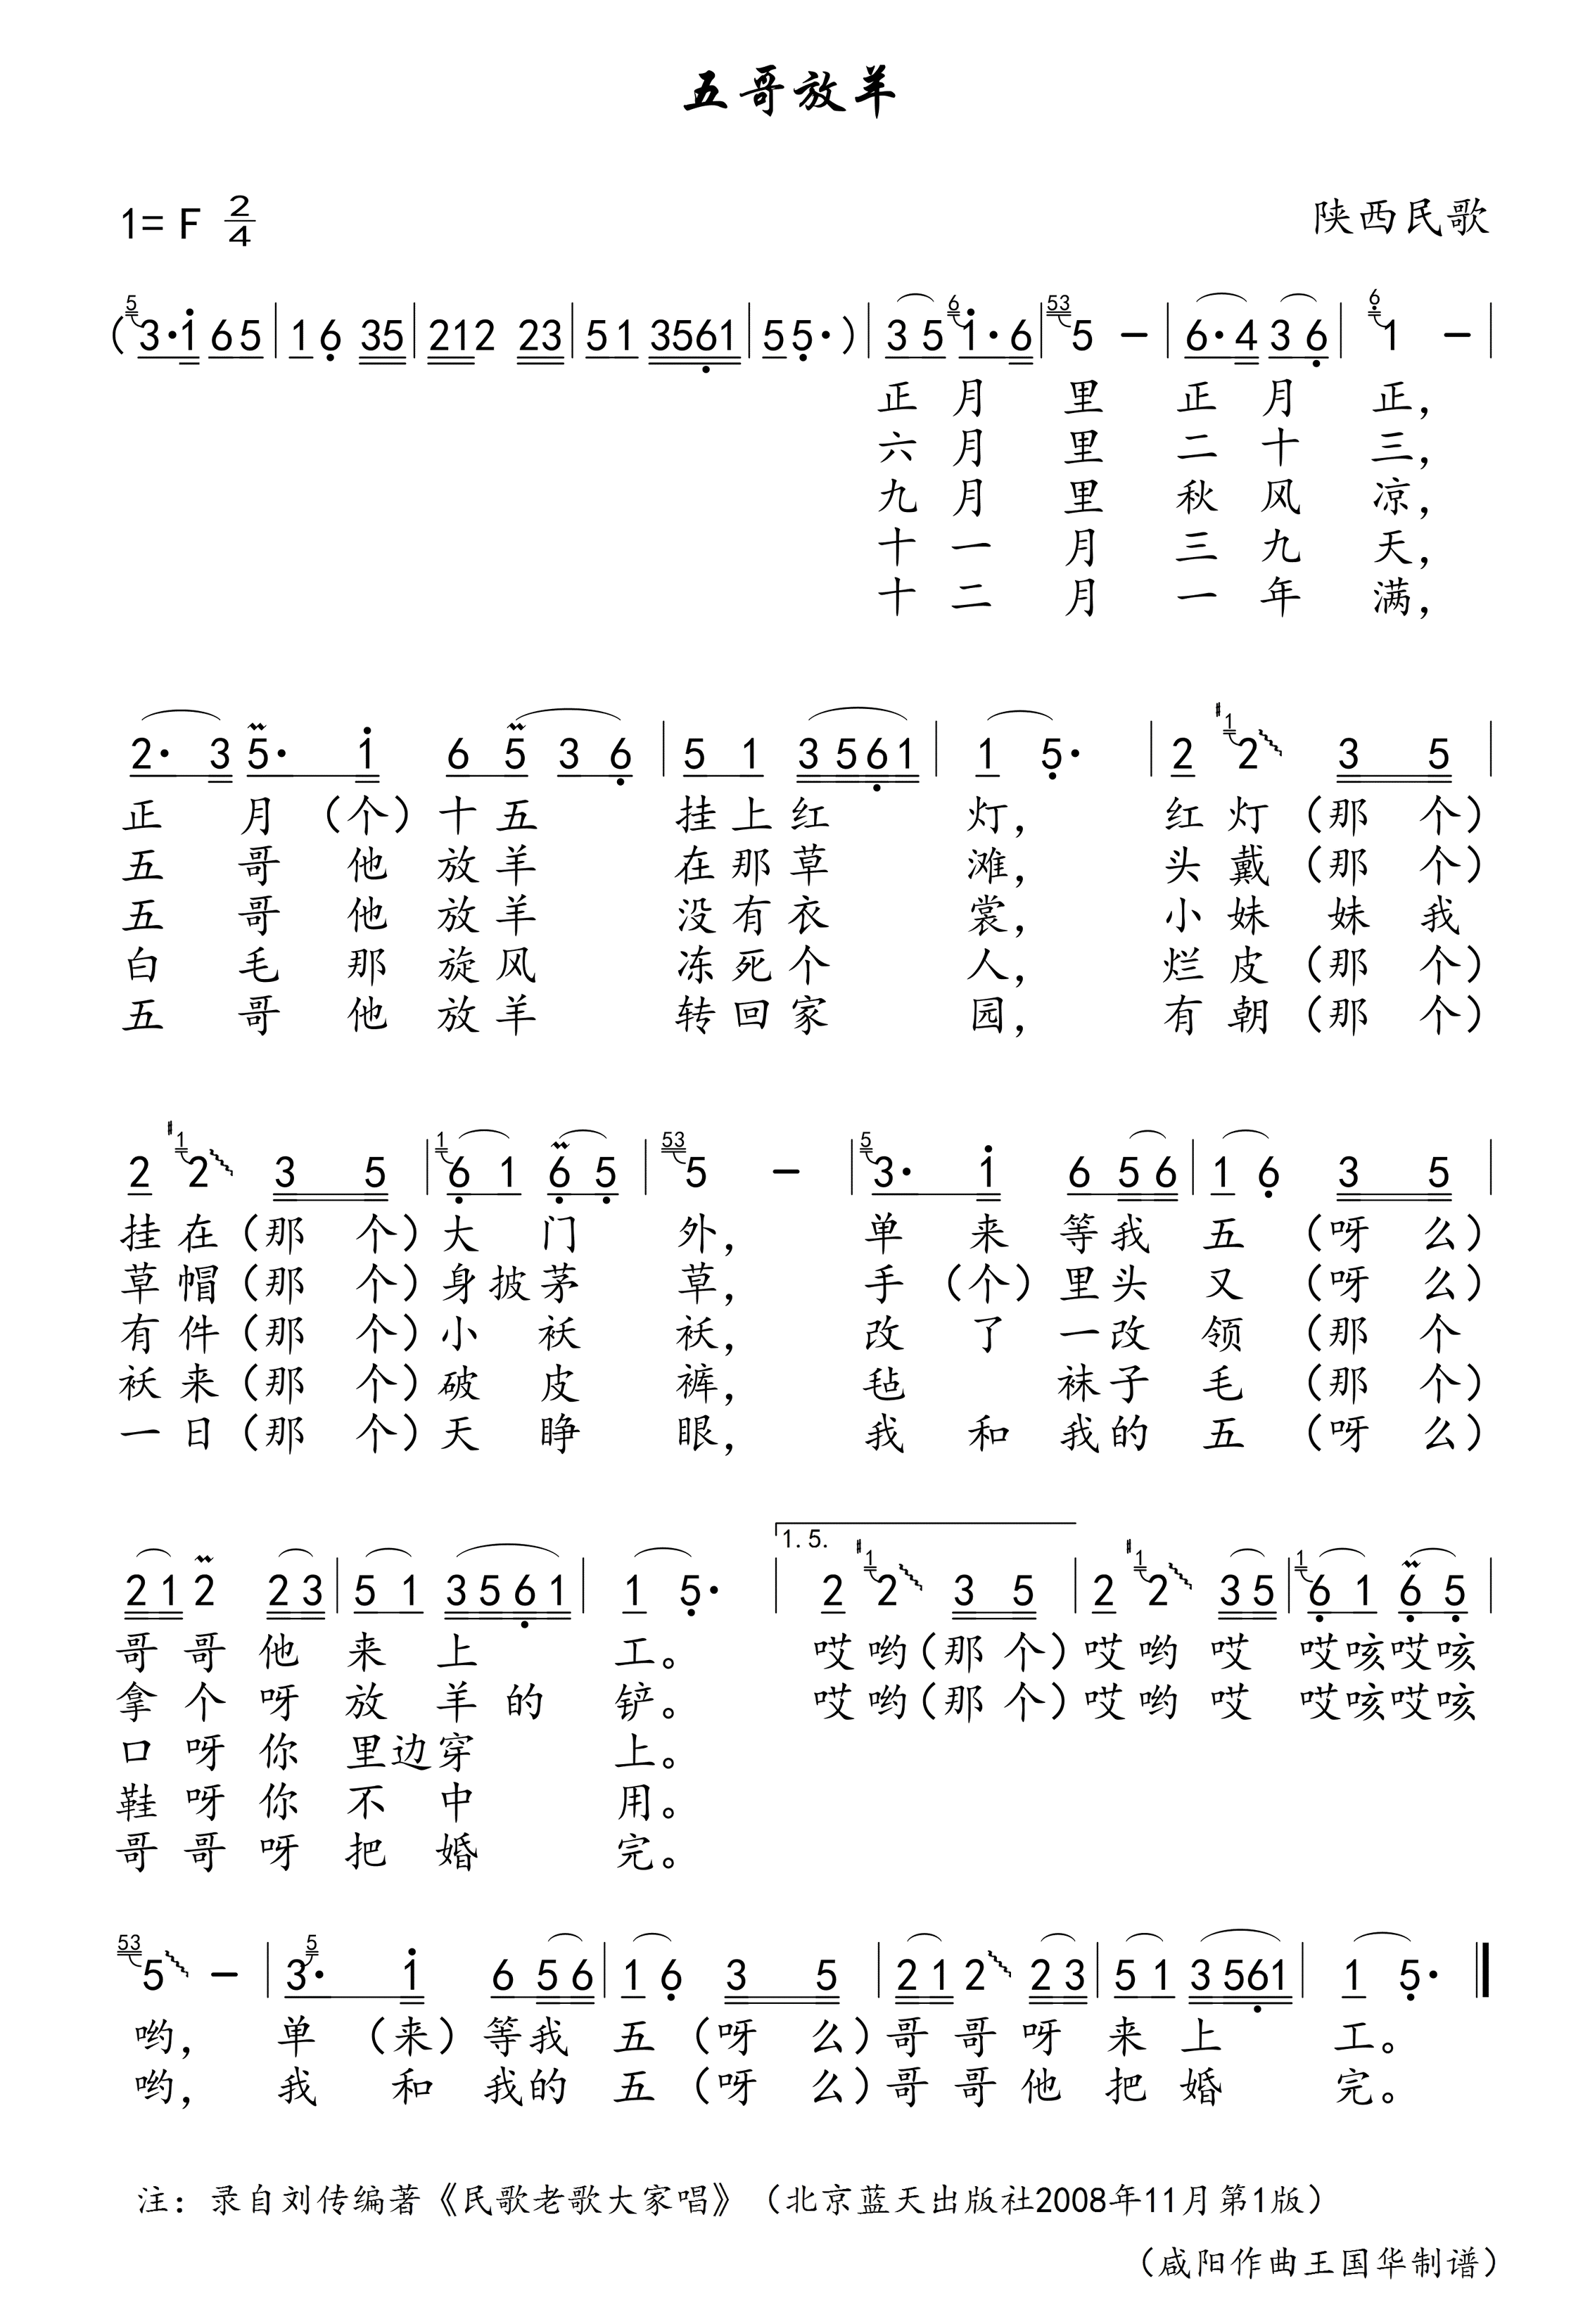 五哥放羊
1= F 2/4
陕西民歌
(5 3·1 65 | 16 35 | 212 23 | 51 3561 | 55· ) | 35 6 1·6 | 53 5 - | 6·4 36 | 6 1 - |
正 月 里 正 月 正，
六 月 里 二 十 三，
九 月 里 秋 风 凉，
十 一 月 三 九 天，
十 二 月 一 年 满，
2· 3 5· 1 6 5 3 6 | 5 1 3561 | 1 5· | 2 #1 2 3 5 |
正 月 （个） 十 五 挂 上 红 灯， 红 灯 （那 个）
五 哥 他 放 羊 在 那 草 滩， 头 戴 （那 个）
五 哥 他 放 羊 没 有 衣 裳， 小 妹 妹 我
白 毛 那 旋 风 冻 死 个 人， 烂 皮 （那 个）
五 哥 他 放 羊 转 回 家 园， 有 朝 （那 个）
2 #1 2 3 5 | 1 6 1 6 5 | 53 5 - | 5 3· 1 6 56 | 1 6 3 5 |
挂 在 （那 个） 大 门 外， 单 来 等 我 五 （呀 么）
草 帽 （那 个） 身 披 茅 草， 手 （个） 里 头 又 （呀 么）
有 件 （那 个） 小 袄 袄， 改 了 一 改 领 （那 个
袄 来 （那 个） 破 皮 裤， 毡 袜 子 毛 （那 个）
一 日 （那 个） 天 睁 眼， 我 和 我 的 五 （呀 么）
21 2 23 | 5 1 3561 | 1 5· | 1.5. 2 #1 2 3 5 | 2 #1 2 35 | 1 6 1 6 5 |
哥 哥 他 来 上 工。 哎 哟 （那 个） 哎 哟 哎 哎咳哎咳
拿 个 呀 放 羊 的 铲。 哎 哟 （那 个） 哎 哟 哎 哎咳哎咳
口 呀 你 里边穿 上。
鞋 呀 你 不 中 用。
哥 哥 呀 把 婚 完。
53 5 - | 3· 5 1 6 56 | 1 6 3 5 | 21 2 23 | 51 3561 | 1 5· ‖
哟， 单 （来） 等 我 五 （呀 么） 哥 哥 呀 来 上 工。
哟， 我 和 我 的 五 （呀 么） 哥 哥 他 把 婚 完。
注：录自刘传编著《民歌老歌大家唱》（北京蓝天出版社2008年11月第1版）
（咸阳作曲王国华制谱）